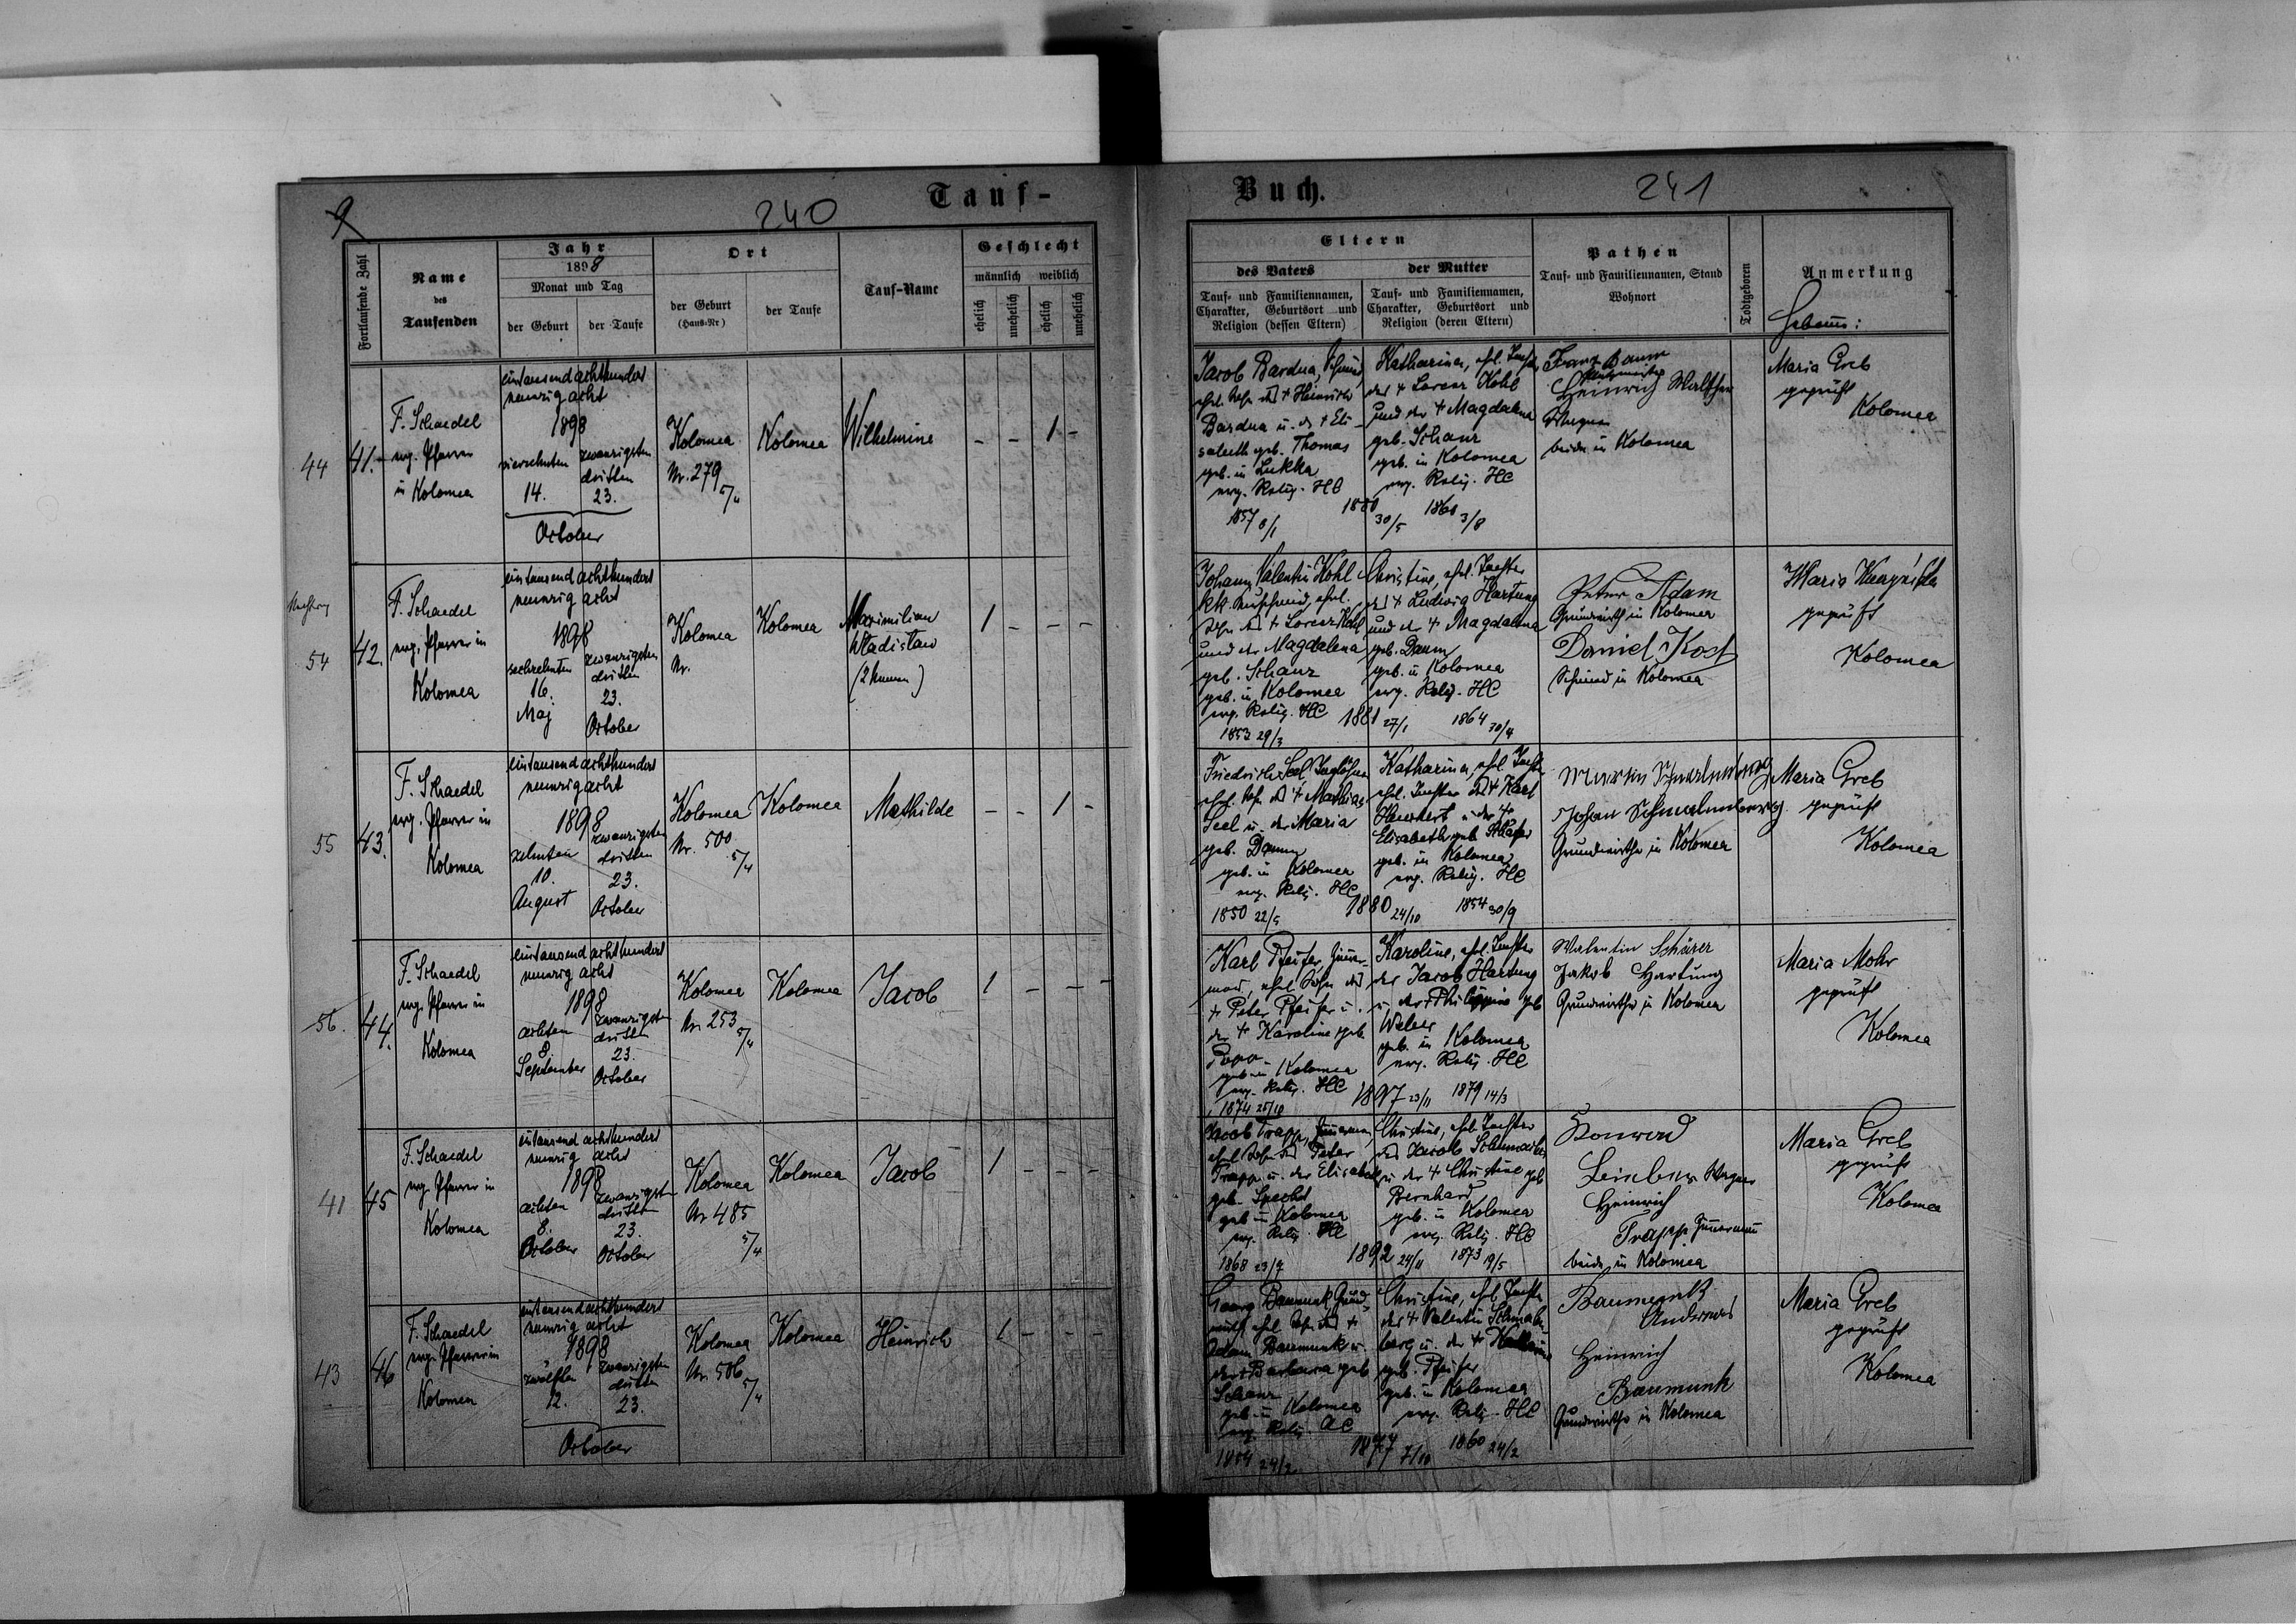 Tauf-
240
9
Fortlaufende Zahl
Name
des
Taufenden
Jahr
1898
Monat und Tag
der Geburt
der Taufe
Ort
der Geburt
(Haus-Nr)
der Taufe
Tauf-Name
Geschlecht
männlich weiblich
ehelich
unehelich
ehelich
unehelich
44
41.
F. Schaedel
evg. Pfarrer
in Kolomea
eintausend achthundert
neunzig acht
1898
vierzehnten
14.
zwanzigsten
dritten
23.
October
Kolomea
Nr. 279
5/4
Kolomea
Wilhelmine
- - 1 -
54
42.
F. Schaedel
evg. Pfarrer in
Kolomea
eintausend achthundert
neunzig acht
1898
sechzehnten
16.
Maj
zwanzigsten
dritten
23.
October
Kolomea
Nr.
Kolomea
Maximilian
Wladislaw
1 - - -
55
43.
F. Schaedel
evg. Pfarrer in
Kolomea
eintausend achthundert
neunzig acht
1898
zehnten
10.
August
zwanzigsten
dritten
23.
October
Kolomea
Nr. 500
5/4
Kolomea
Mathilde
- - 1 -
56.
44.
F. Schaedel
evg. Pfarrer in
Kolomea
eintausend achthundert
neunzig acht
1898
achten
8.
September
zwanzigsten
dritten
23.
October
Kolomea
Nr. 253
5/4
Kolomea
Jacob
1 - - -
41
45
F. Schaedel
evg. Pfarrer in
Kolomea
eintausend achthundert
neunzig acht
1898
achten
8.
October
zwanzigsten
dritten
23.
October
Kolomea
Nr 485
5/4
Kolomea
Jacob
1 - - -
43
46
F. Schaedel
evg. Pfarrer in
Kolomea
eintausend achthundert
neunzig acht
1898
zwölften
12.
zwanzigsten
dritten
23.
October
Kolomea
Nr. 506
5/4
Kolomea
Heinrich
1 - - -
Buch.
241
Eltern
des Vaters
Tauf- und Familiennamen,
Charakter, Geburtsort und
Religion (dessen Eltern)
der Mutter
Tauf- und Familiennamen,
Charakter, Geburtsort und
Religion (deren Eltern)
Pathen
Tauf- und Familiennamen, Stand
Wohnort
Todtgeboren
Anmerkung
Jacob Bardua, Schmied,
ehel. Sohn des + Heinrich
Bardua u. d. + Eli-
sabeth geb. Thomas
geb. in
evg. Relig. HC
1857 8/1
1880 30/5
Katharina, ehl. Tochter
des + Lorenz Kohl
und der + Magdalena
geb. Schanz
geb. in Kolomea
evg. Relig. HC
1860 3/8
Franz Daum
Heinrich Walther
Wagner
beide in Kolomea
Maria Greb
geprüft
Kolomea
Johann Valentin Kohl
kk. ehel.
Sohn des + Lorenz Kohl
und der Magdalena
geb. Schanz
geb. in Kolomea
evg. Relig. HC
1853 29/3
1881 27/1
Christine, ehel. Tochter
des + Ludwig Hartung
und der + Magdalena
geb. Daum
geb. in Kolomea
evg. Relig. HC
1864 30/4
Peter Adam
Grundwirth in Kolomea
Daniel Kost
Schmied in Kolomea
Maria
geprüft
Kolomea
Friedrich Seel Taglöhner
ehel. Sohn des + Mathias
Seel u. der Maria
geb. Daum
geb. in Kolomea
evg. Relig. HC
1850 22/5
1880 24/10
Katharina, ehel. Tochter
ehel. Tochter des + Karl
u. der +
Elisabeth geb. Schäfer
geb. in Kolomea
evg. Relig. HC
1854 30/9
Martin Schmalenberg
Johan Schmalenberg
Grundwirthe in Kolomea
Maria Greb
geprüft
Kolomea
Karl Pfeifer, Zimmer-
mann, ehel. Sohn des
+ Peter Pfeifer u.
der + Karoline geb.
Popp
geb. in Kolomea
evg. Relig. HC
1874 25/10
1897 23/11
Karoline, ehel. Tochter
des Jacob Hartung
u. der + Philippine geb
Weber
geb. in Kolomea
evg. Relig. HC
1879 14/3
Walentin Schärer
Jakob Hartung
Grundwirthe in Kolomea
Maria Mohr
geprüft
Kolomea
Jacob Trapp, Zimmermann,
ehel. Sohn des Peter
Trapp u. der Elisabeth
geb. Specht
geb. in Kolomea
evg. Relig. HC
1868 23/7
1892 24/11
Christine, ehel. Tochter
des Jacob Schumacher
u. der + Christine geb
Bernhard
geb. in Kolomea
evg. Relig. HC
1873 19/5
Konrad
Wagner
Heinrich
Trapp Zimmermann
beide in Kolomea
Maria Greb
geprüft
Kolomea
Georg Baumunk Grund-
wirth ehel. Sohn des +
Adam Baumunk u.
der + Barbara geb
Schanz
geb. in Kolomea
evg. Relig. AC
1854 24/2
1877 7/10
Christine, ehel. Tochter
des + Valentin Schmalen-
berg u. der +
geb. Pfeifer
geb. in Kolomea
evg. Relig. HC
1860 24/2
Baumunk
Andreas
Heinrich
Baumunk
Grundwirthe in Kolomea
Maria Greb
geprüft
Kolomea